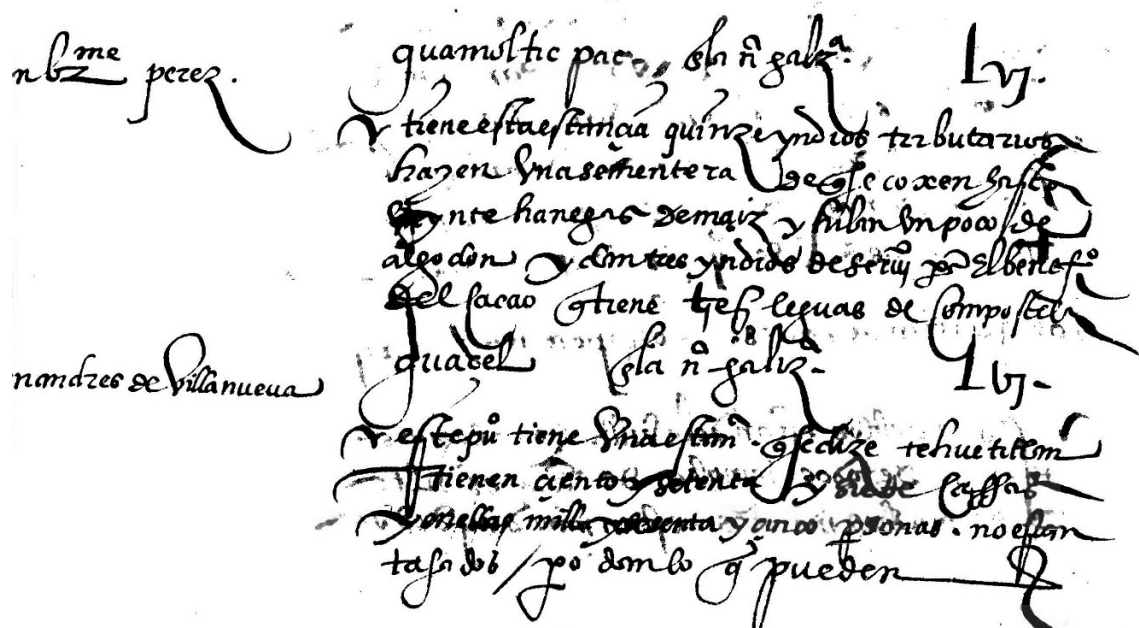 n bz^me perez .
quamoltic pac . gla nª galzª . Lvj .
y tiene esta estancia quinze yndios tributarios
hazen una sementera de q̃ se coxen hasta
veynte hanegas de maiz y hilan un poco de
algodon y dan tres yndios de serui° pª el benef°
del cacao q̃ tiene tres leguas de compostela
guacel gla nª galizª . Lvj .
nandres de Villanueva
y este pu° tiene una estanª . q̃ se dize tehuetitlan
tienen ciento y setenta y siete casas
y en ellas mill y y cinco psonas . no estan
tasados / po dan lo q̃ pueden